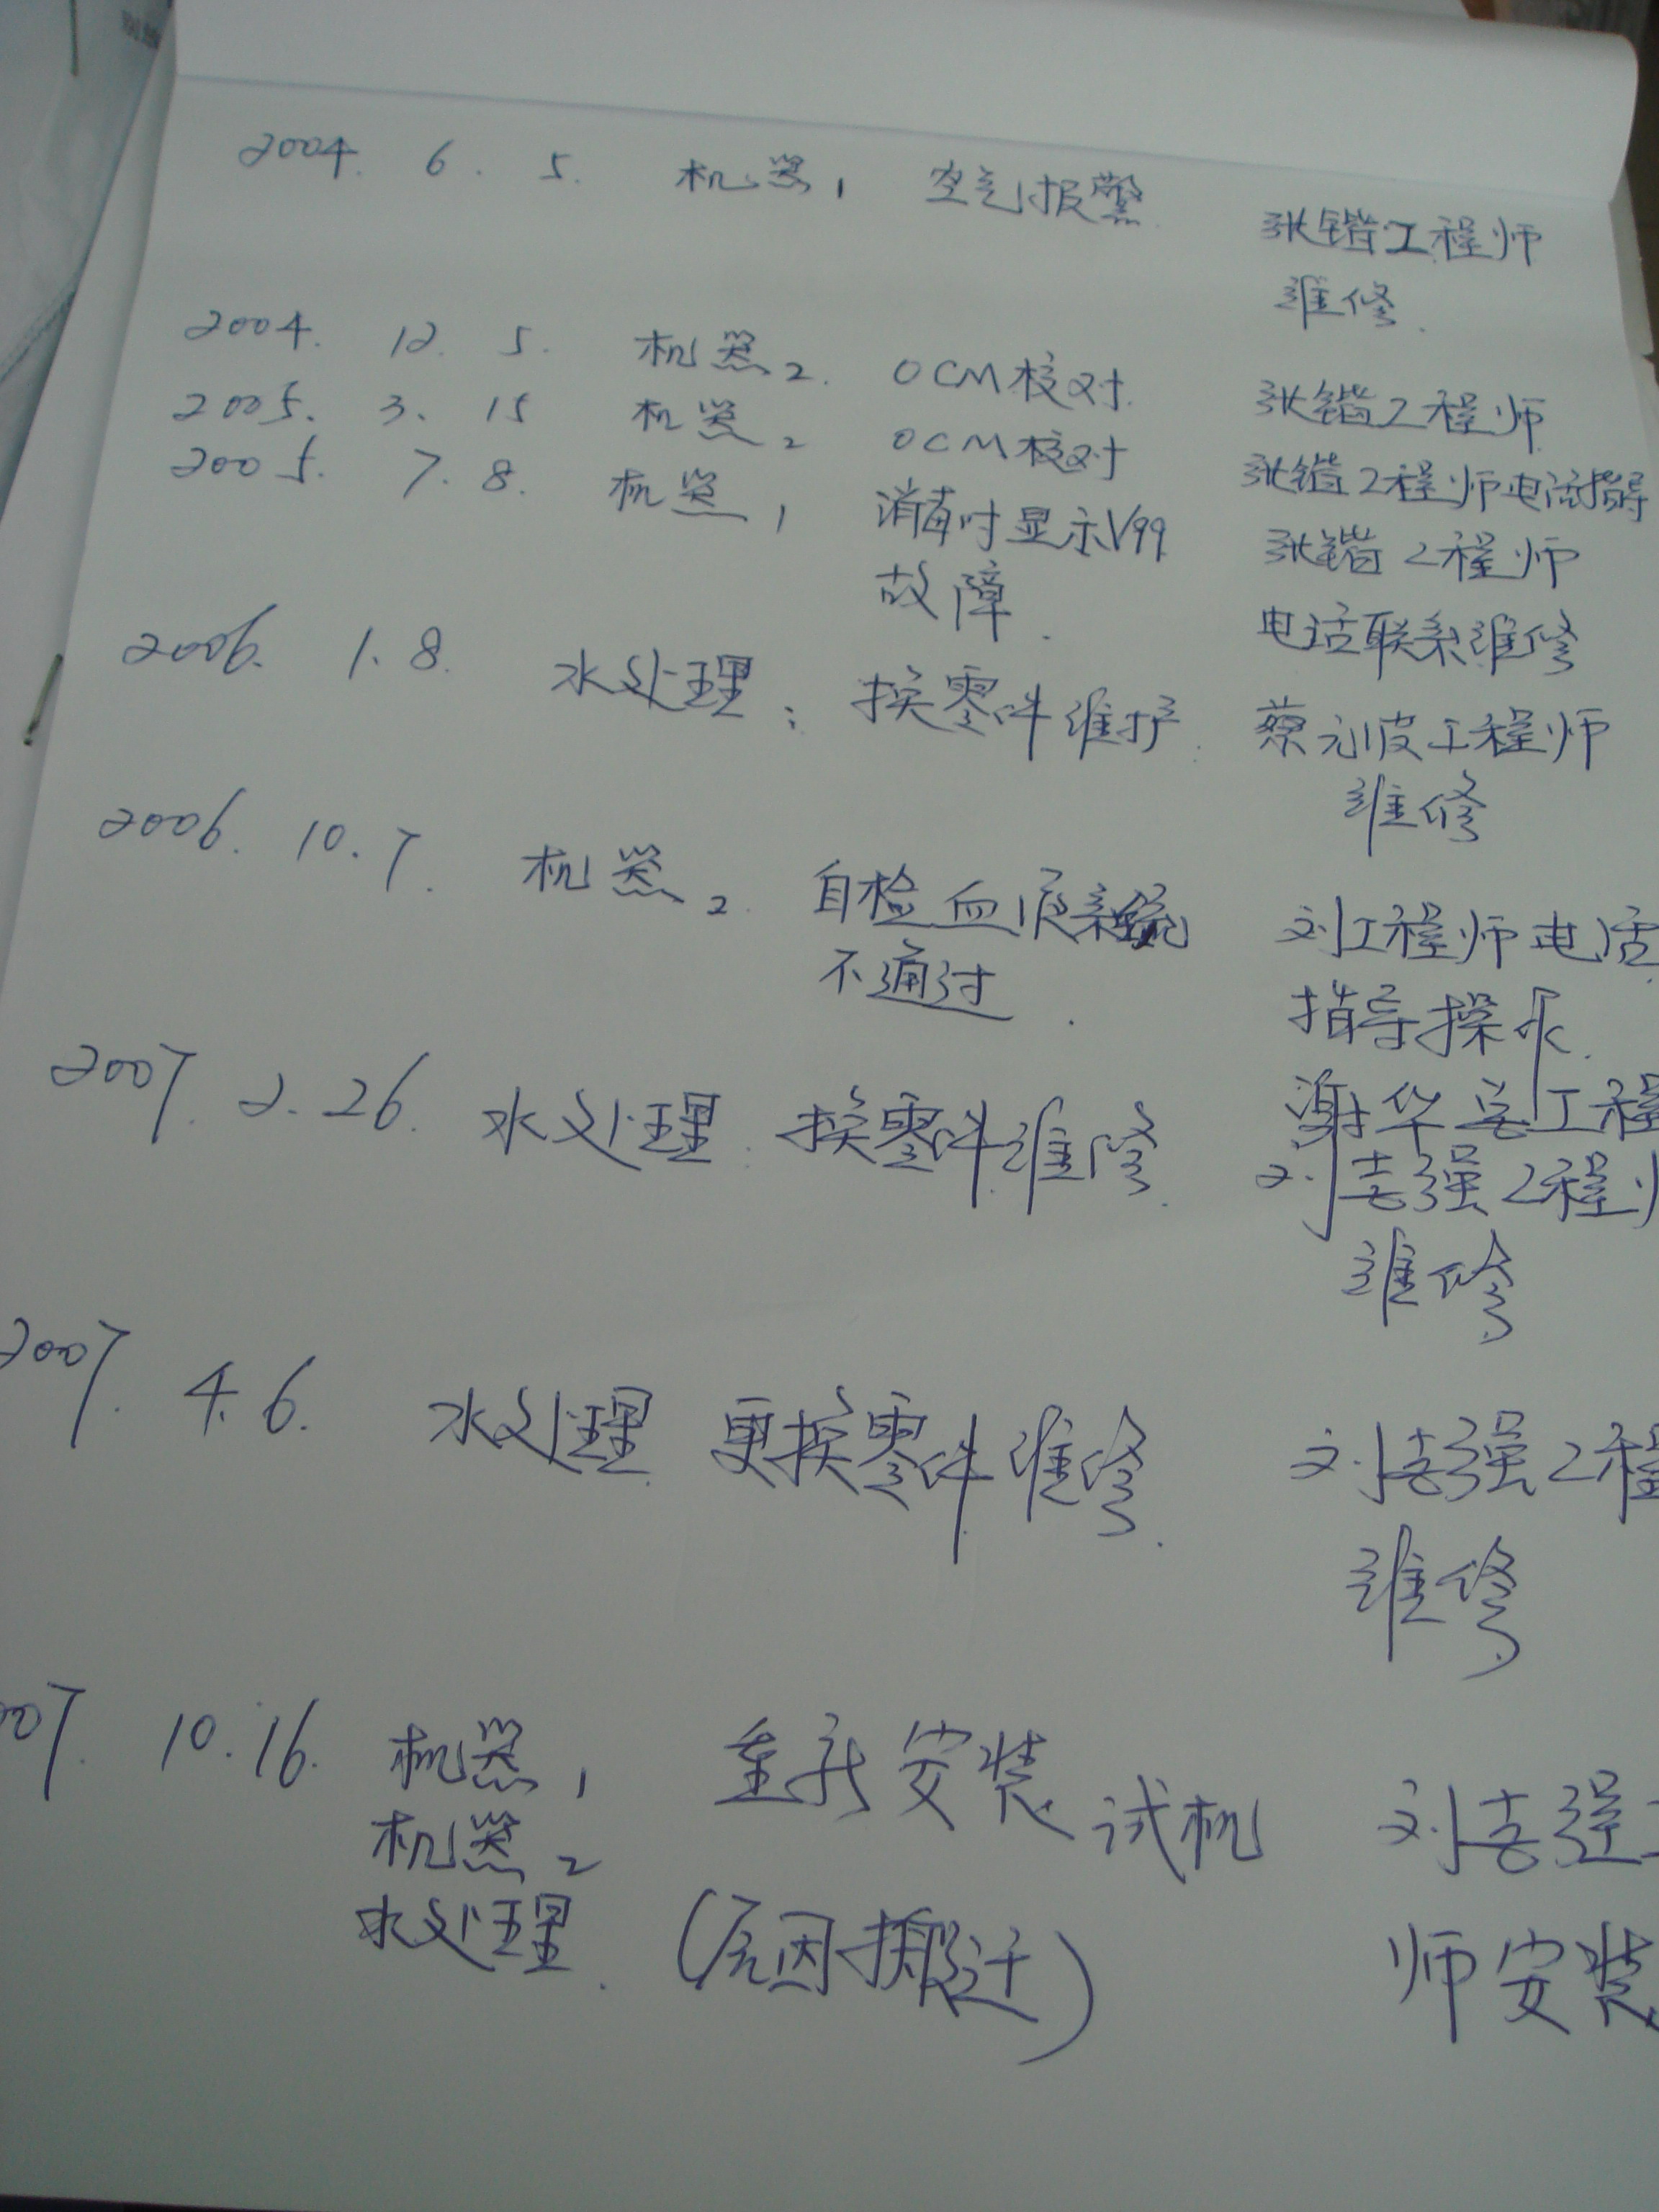 2004. 6. 5. 机器1 空气报警 张锴工程师
维修.
2004. 12. 5. 机器2. OCM校对. 张锴工程师
2005. 3. 15 机器2 OCM校对 张锴工程师电话指导
2005. 7. 8. 机器1 消毒时显示V99 张锴工程师
故障. 电话联系维修
2006. 1. 8. 水处理: 换零件维护. 蔡元波工程师
维修
2006. 10. 7. 机器2. 自检血液系统 刘工程师电话
不通过. 指导操作.
2007. 2. 26. 水处理. 换零件维修. 谢华 工程
刘志强工程
维修
2007. 4. 6. 水处理. 更换零件维修. 刘志强工程
维修
007. 10. 16. 机器1 重新安装试机 刘志强
机器2
水处理. (原因搬迁) 师安装